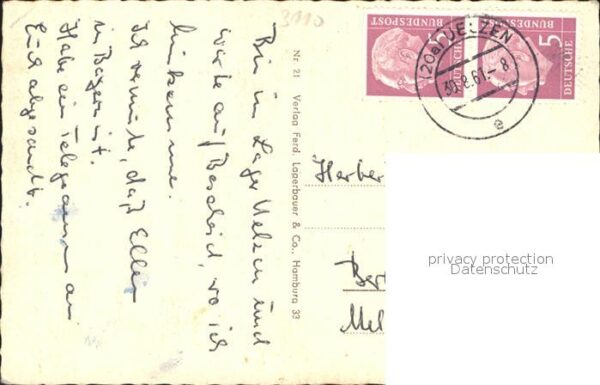 3110
Bin im Lager Uelzen und
warte auf Bescheid, wo ich
hinkomme.
Ich vermute, daß Ellen
in Bayern ist.
Habe ein Telegramm an
Euch abgesandt.
Nr. 21 Verlag Ferd. Lagerbauer & Co., Hamburg 33
DEUTSCHE
BUNDESPOST
5
DEUTSCHE
BUNDESPOST
(20a) UELZEN
30.8.61.- 8
a
Herber
Ber
Mel
privacy protection
Datenschutz